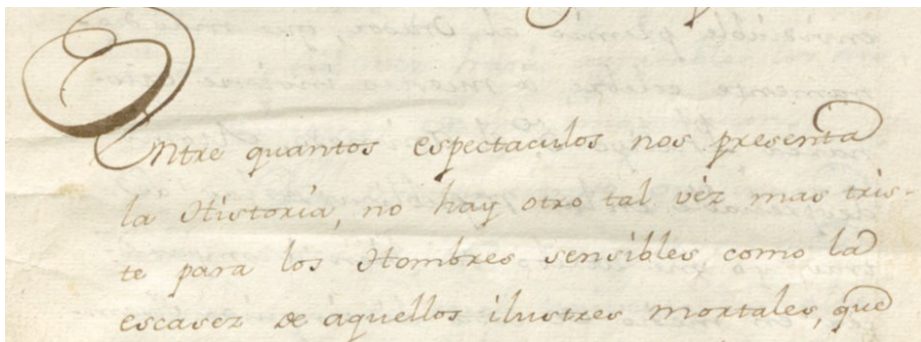 Entre quantos espectaculos nos presenta
la Historia, no hay otro tal vez mas tris-
te para los Hombres sensibles, como la
escasez de aquellos ilustres mortales, que